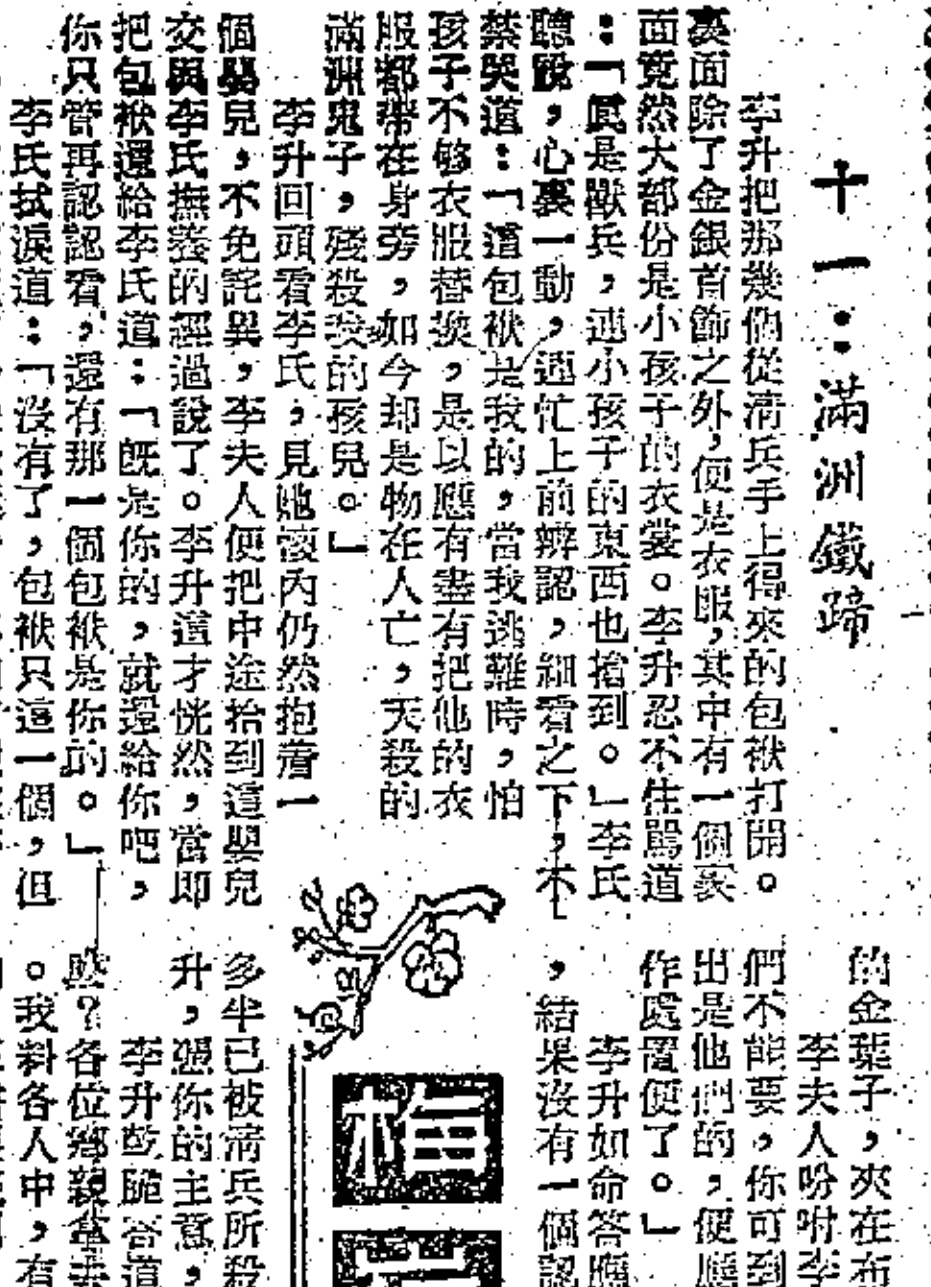 十一:滿洲鐵蹄
李升把那幾個從清兵手上得來的包袱打開。
裏面除了金銀首飾之外,便是衣服,其中有一個裏
面竟然大部份是小孩子的衣裳。李升忍不住駡道
:「眞是獸兵,連小孩子的東西也搶到。」李氏
聽說,心裏一動,連忙上前辨認,細看之下,不
禁哭道:「這包袱是我的,當我逃難時,怕
孩子不够衣服替換,是以應有盡有把他的衣
服都帶在身旁,如今却是物在人亡,天殺的
滿洲鬼子,殘殺我的孩兒。」
李升回頭看李氏,見她懷內仍然抱着一
個嬰兒,不免詫異,李夫人便把中途拾到這嬰兒
交與李氏撫養的經過說了。李升這才恍然,當即
把包袱還給李氏道:「旣是你的,就還給你吧,
你只管再認認看,還有那一個包袱是你的。」
李氏拭淚道:「沒有了,包袱只這一個,但
的金葉子,夾在布
李夫人吩咐李
們不能要,你可到
出是他們的,便應
作處置便了。」
李升如命答應
,結果沒有一個認
梅
多半已被清兵所殺
升,憑你的主意,
李升乾脆答道
各位鄉親
。我料各人中,有